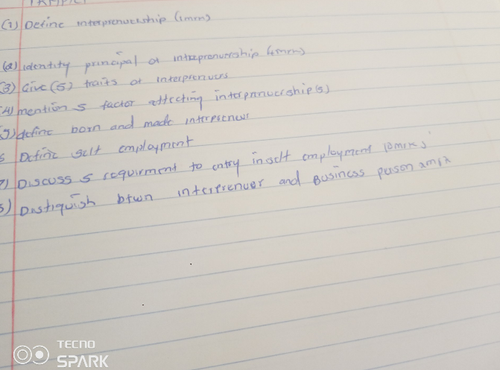 (1) Define interprenuership (1mm)
(2) identity principal of interprenuership (4mm)
(3) Give (5) traits of interprenuers
(4) mention 5 factor affecting interprenuership(5)
define born and made interprenuer
6 Define self employment
7) Discuss 5 requirement to entry in self employment 10mks
8) Distiquish btwn interprenuer and Business person 2mks
TECNO
SPARK